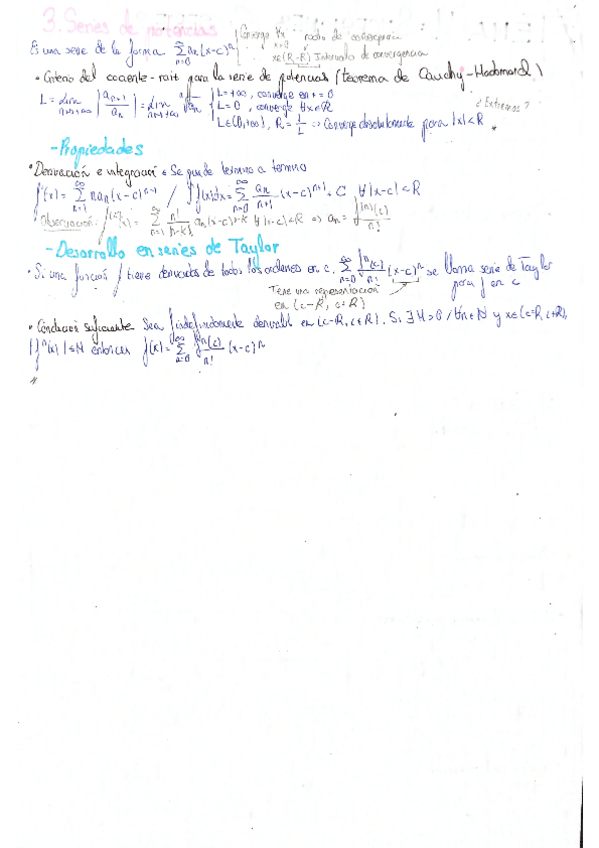 3. Series de potencias
Converge ∀x radio de convergencia
x=0
Es una serie de la forma ∑_{n=0}^{∞} aₙ(x-c)ⁿ x∈(R,-R) Intervalo de convergencia
• Criterio del cociente-raiz para la serie de potencias (teorema de Cauchy-Hadamard)
L = lim_{n→+∞} |aₙ₊₁/aₙ| = lim_{n→+∞} ⁿ√aₙ
L=+∞, converge en x=0
L=0, converge ∀x∈R
L∈(0,+∞), R=1/L => Converge absolutamente para |x|<R
¿Extremos?
-Propiedades
• Derivación e integración: Se puede termino a termino
f'(x) = ∑_{n=1}^{∞} naₙ(x-c)ⁿ⁻¹ / ∫f(x)dx = ∑_{n=0}^{∞} aₙ/(n+1) (x-c)ⁿ⁺¹ + C ∀ |x-c|<R
Observación: f^{(k)}(x) = ∑_{n=1}^{∞} n!/(n-k)! aₙ(x-c)^{n-k} ∀ |x-c|<R => aₙ = f^{(n)}(c)/n!
-Desarrollo en series de Taylor
• Si una función f tiene derivadas de todos los ordenes en c, ∑_{n=0}^{∞} fⁿ(c)/n! (x-c)ⁿ se llama serie de Taylor
para f en c
Tiene una representación
en (c-R, c+R)
• Condición suficiente Sea f indefinidamente derivable en (c-R, c+R). Si ∃M>0 / ∀n∈N y x∈(c-R, c+R),
|fⁿ(x)|≤M entonces f(x) = ∑_{n=0}^{∞} fⁿ(c)/n! (x-c)ⁿ